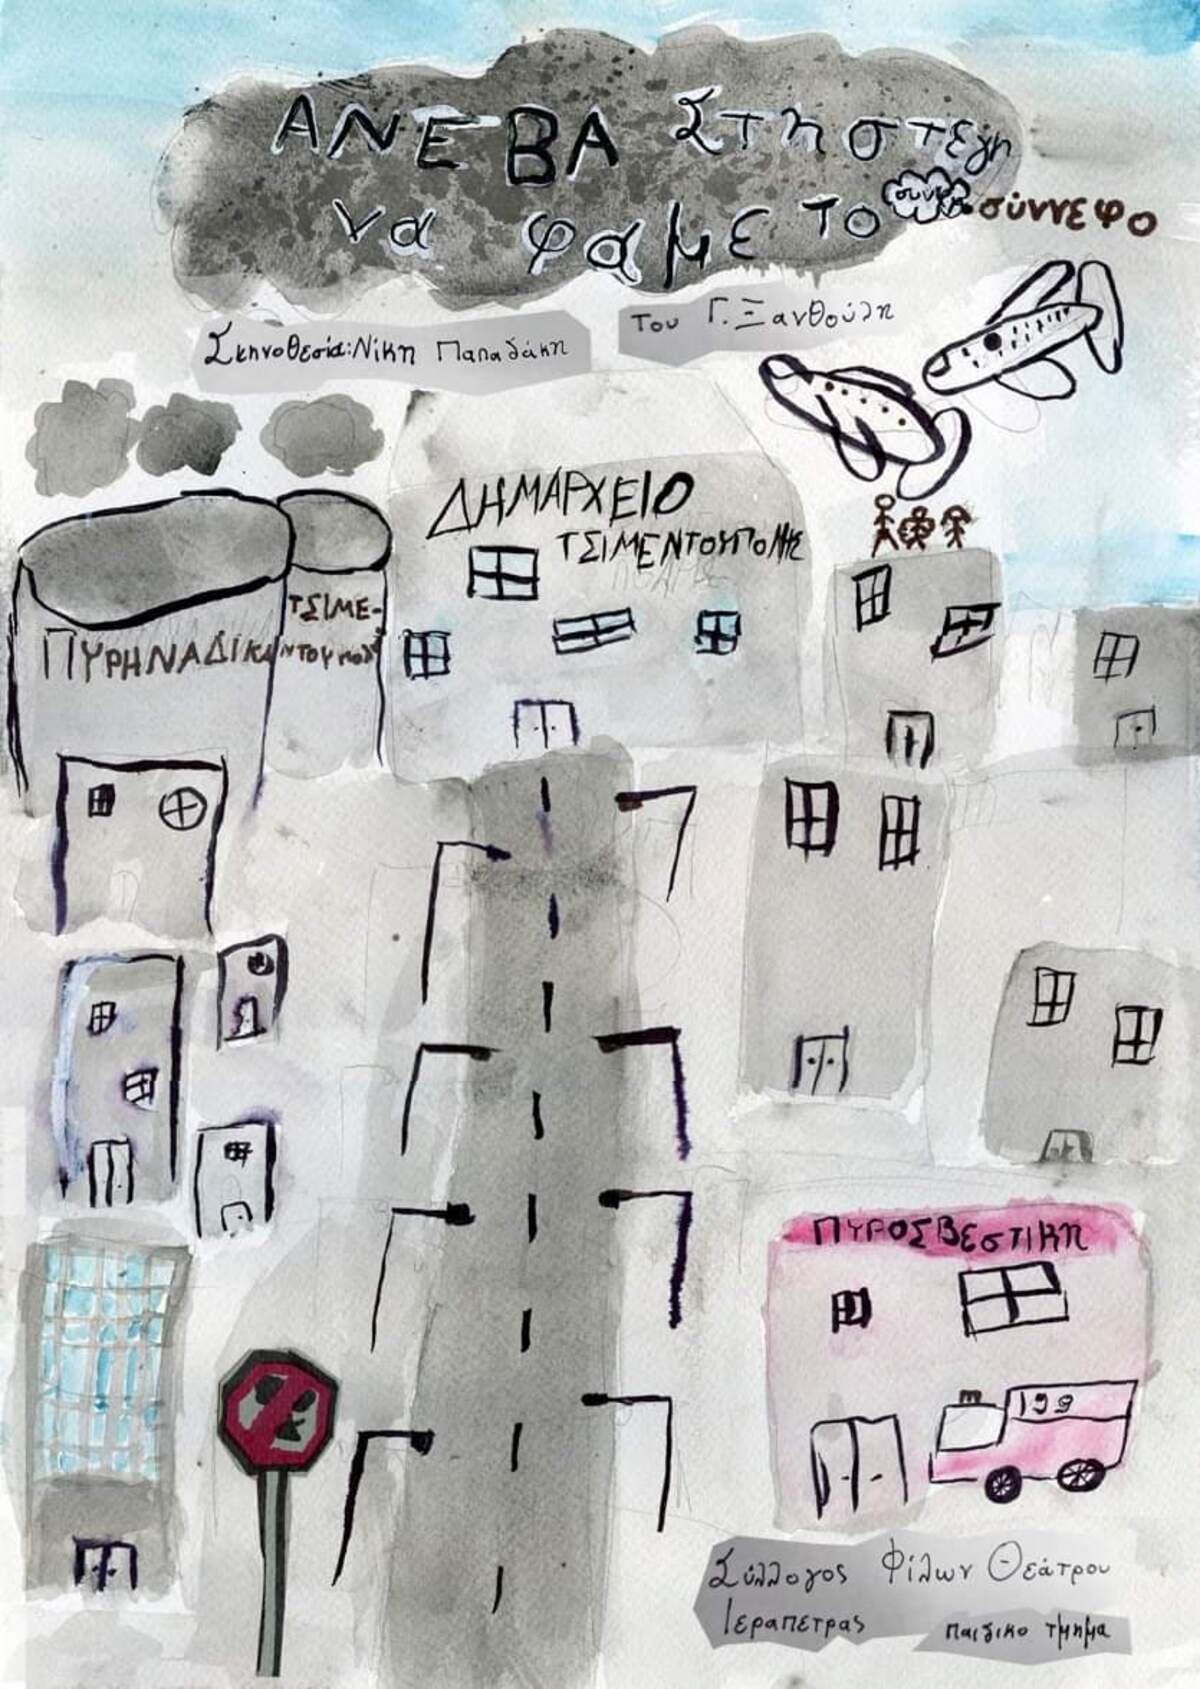 ΑΝΕΒΑ Στη στέγη
να φαμε το σύννεφο
Του Γ. Ξανθούλη
Σκηνοθεσία: Νίκη Παπαδάκη
ΔΗΜΑΡΧΕΙΟ
ΤΣΙΜΕΝΤΟΥΠΟΛΗΣ
ΠΥΡΗΝΑΔΙΚΑ
ΤΣΙΜΕ-
ΝΤΟΥΠΟΛΗΣ
ΠΥΡΟΣΒΕΣΤΙΚΗ
199
Σύλλογος Φίλων Θεάτρου
Ιεραπετρας παιδικο τμημα